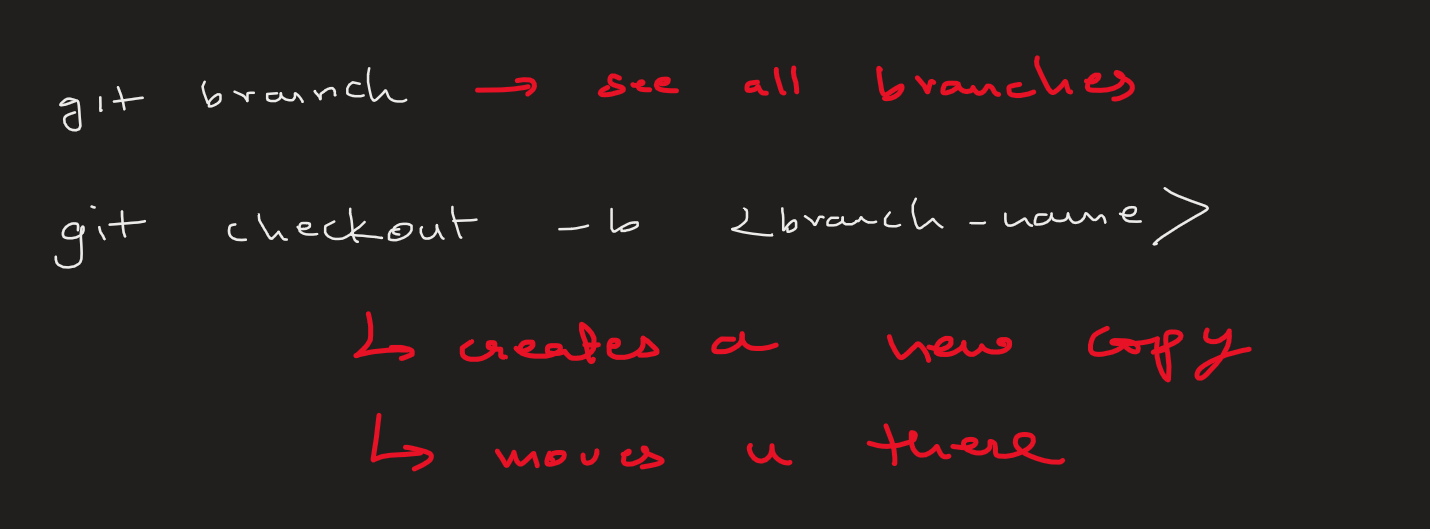 git branch → see all branches
git checkout -b <branch-name>
↳ creates a new copy
↳ moves u there